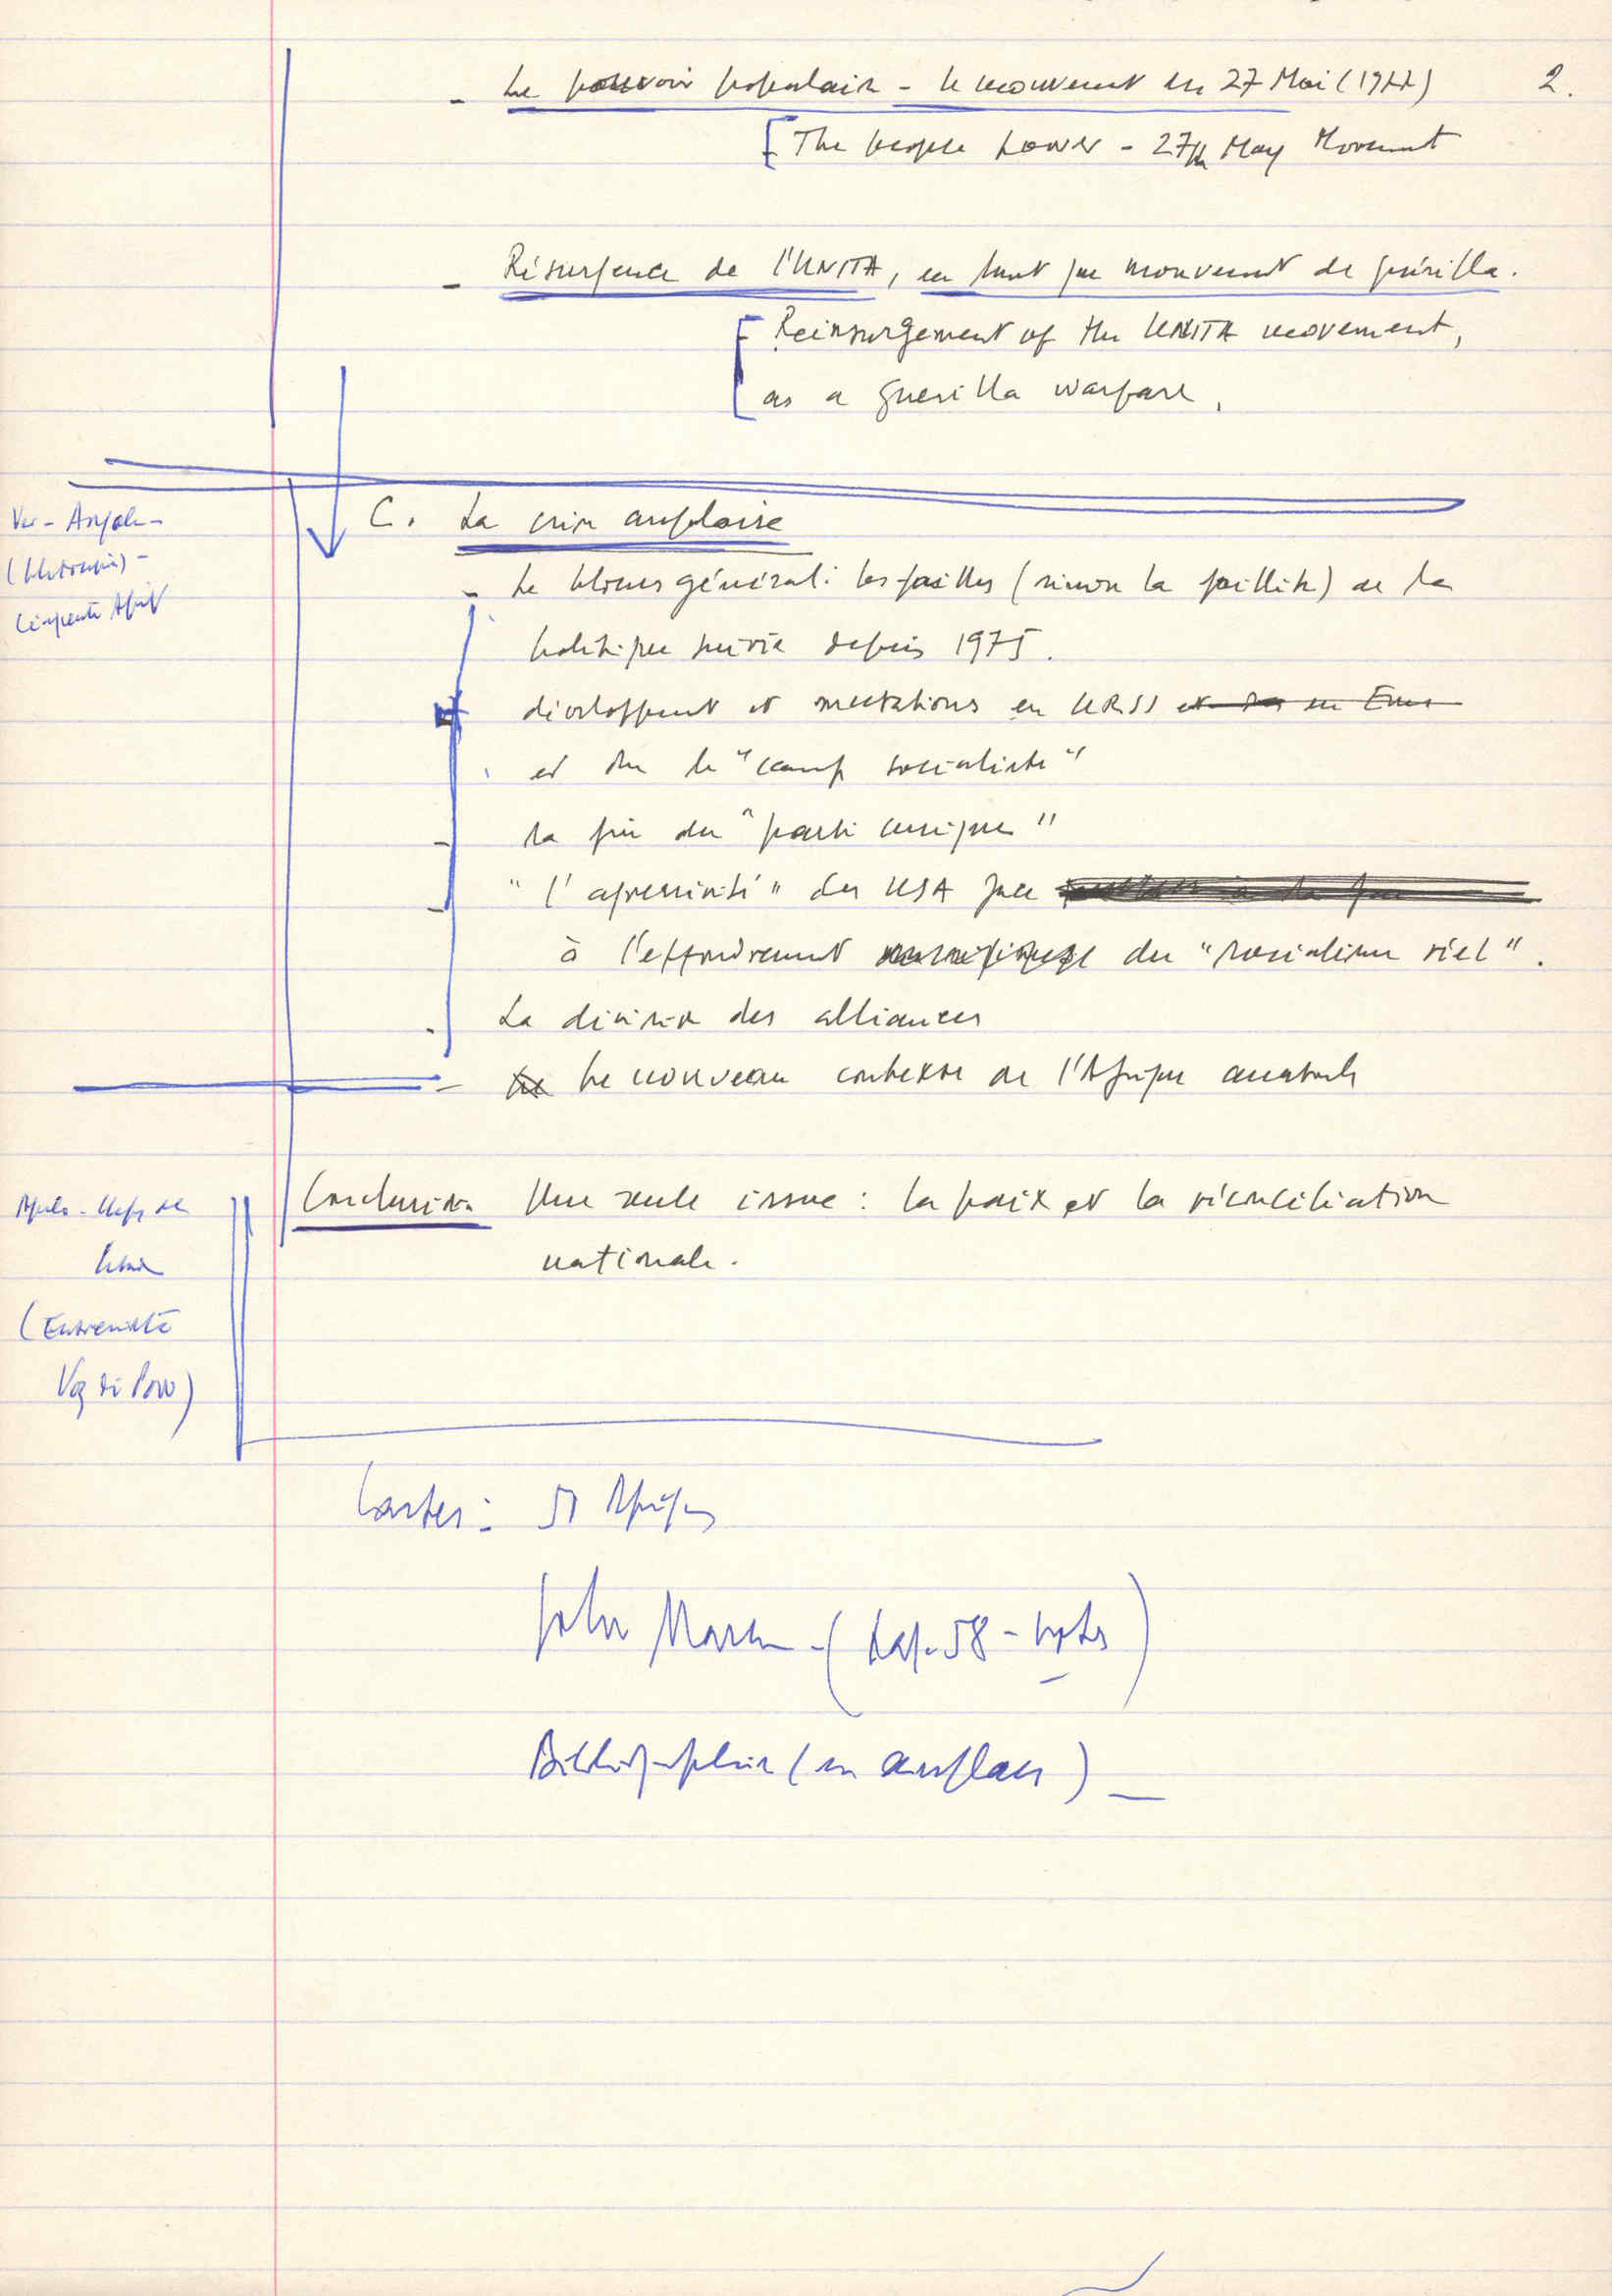 2.
- Le pouvoir populaire - le mouvement du 27 Mai (1977)
[The people power - 27th May Movement
- Résurgence de l'UNITA, en tant que mouvement de guérilla.
[Reinsurgement of the UNITA movement,
as a guerilla warfare.
C. La crise angolaise
- Le blocus général: les failles (sinon la faillite) de la
politique suivie depuis 1975.
développement et mutations en URSS
et du le "camp socialiste"
- la fin du "parti unique"
- "l'agressivité" des USA face
à l'effondrement du "socialisme réel".
- La division des alliances
- Le nouveau contexte de l'Afrique australe
Conclusion Une seule issue : la paix et la réconciliation
nationale.
(Entrevista
Cartes : Afrique
John Marcum - ( 58 - )
Bibliographie (en anglais) -